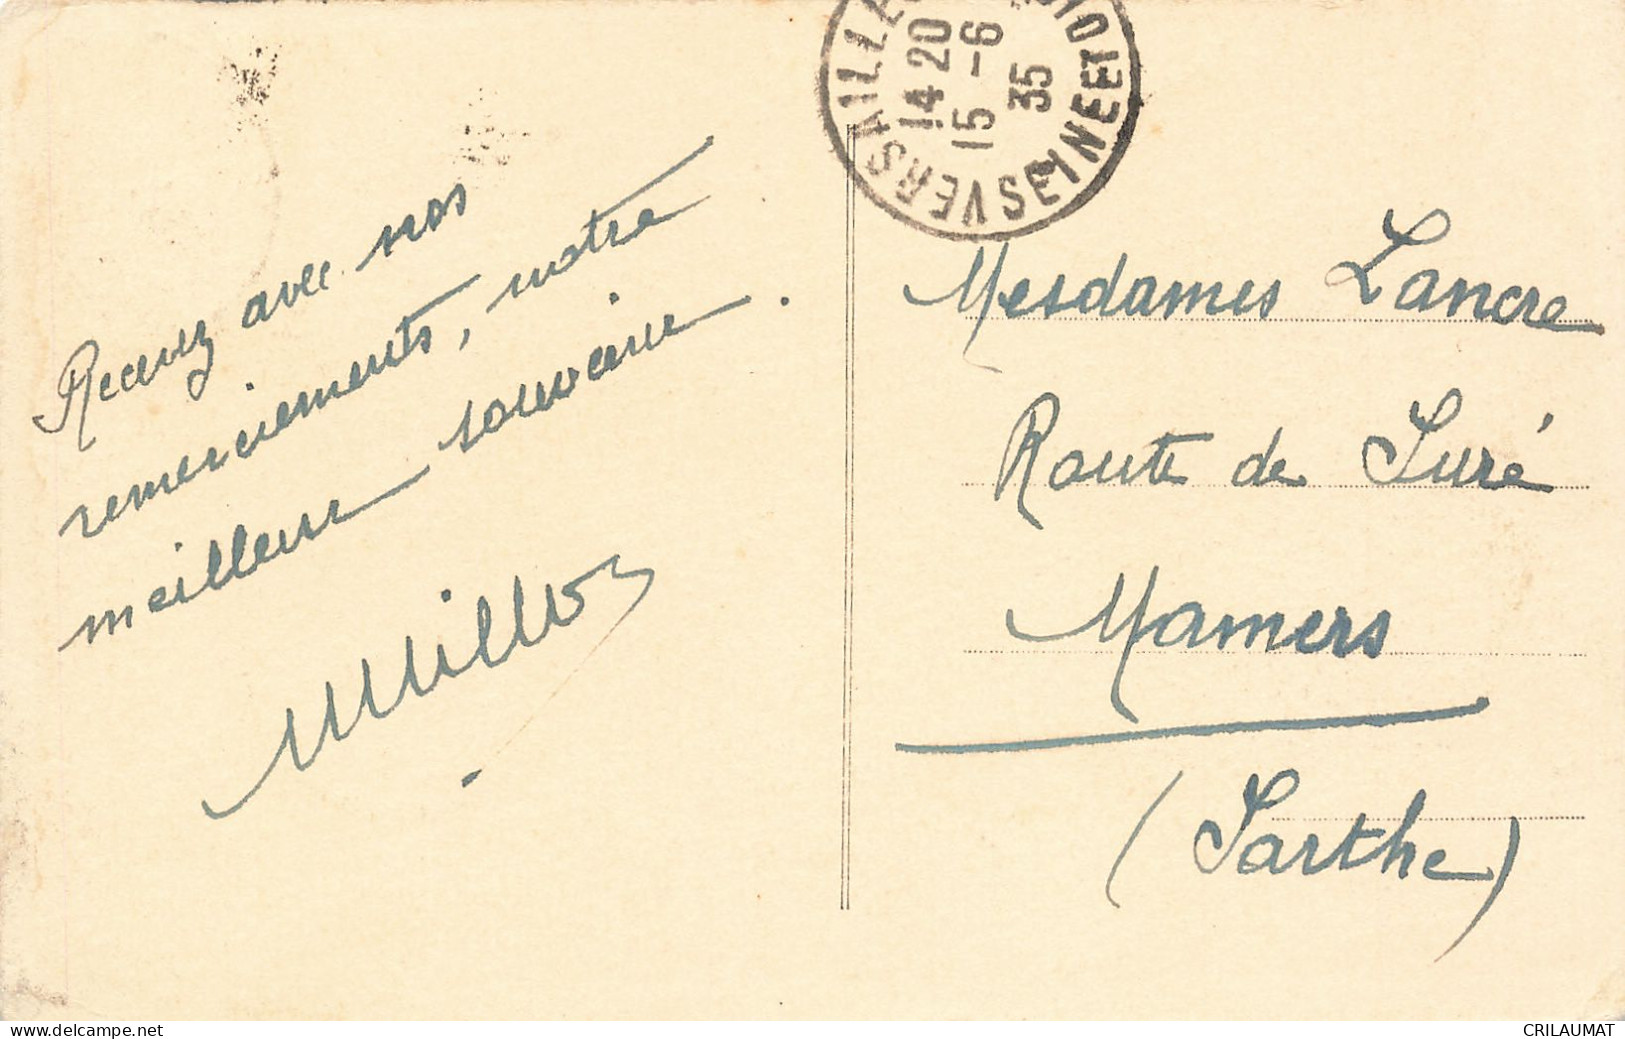 VERSAILLES
SEINE ET OISE
14 20
15 -6
35
Recevez avec nos
remerciements, notre
meilleur souvenir.
Mesdames Lancre
Route de Suré
Mamers
(Sarthe)
www.delcampe.net
CRILAUMAT